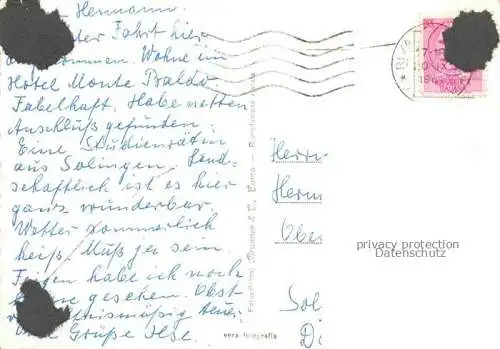 Hermann.
ter Fahrt hier
kommen. Wohne im
Hotel Monte Baldo.
Fabelhaft. Habe netten
Anschluß gefunden.
Eine Studienrätin
aus Solingen. Land-
schaftlich ist es hier
ganz wunderbar.
Wetter sommerlich
heiß. Muß ja sein.
Feigen habe ich noch
gesehen. Obst
nismäßig teuer
Grüße Ilse.
Herrn
Herm
Ober
Sol
D
privacy protection
Datenschutz
vera fotografia